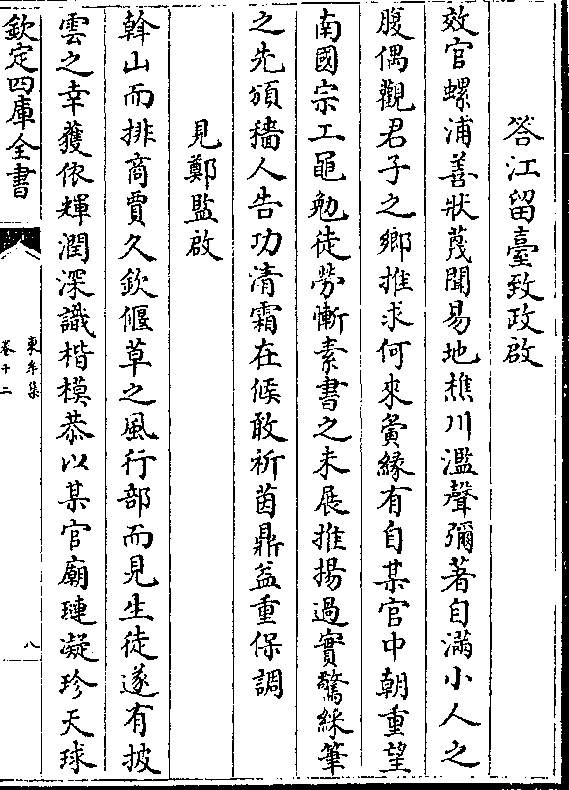 答江留臺致政啟
效官螺浦善狀蔑聞易地樵川濫聲彌著自滿小人之
腹偶觀君子之鄉推求何來夤緣有自某官中朝重望
南國宗工黽勉徒勞慚素書之未展推揚過實驚綵筆
之先頒穡人告功清霜在候敢祈茵鼎益重保調
見鄭監啟
斡山而排商賈久欽偃草之風行部而見生徒遂有披
雲之幸獲依輝潤深識楷模恭以某官廟璉凝珍天球
欽定四庫全書
東牟集
卷十二
八